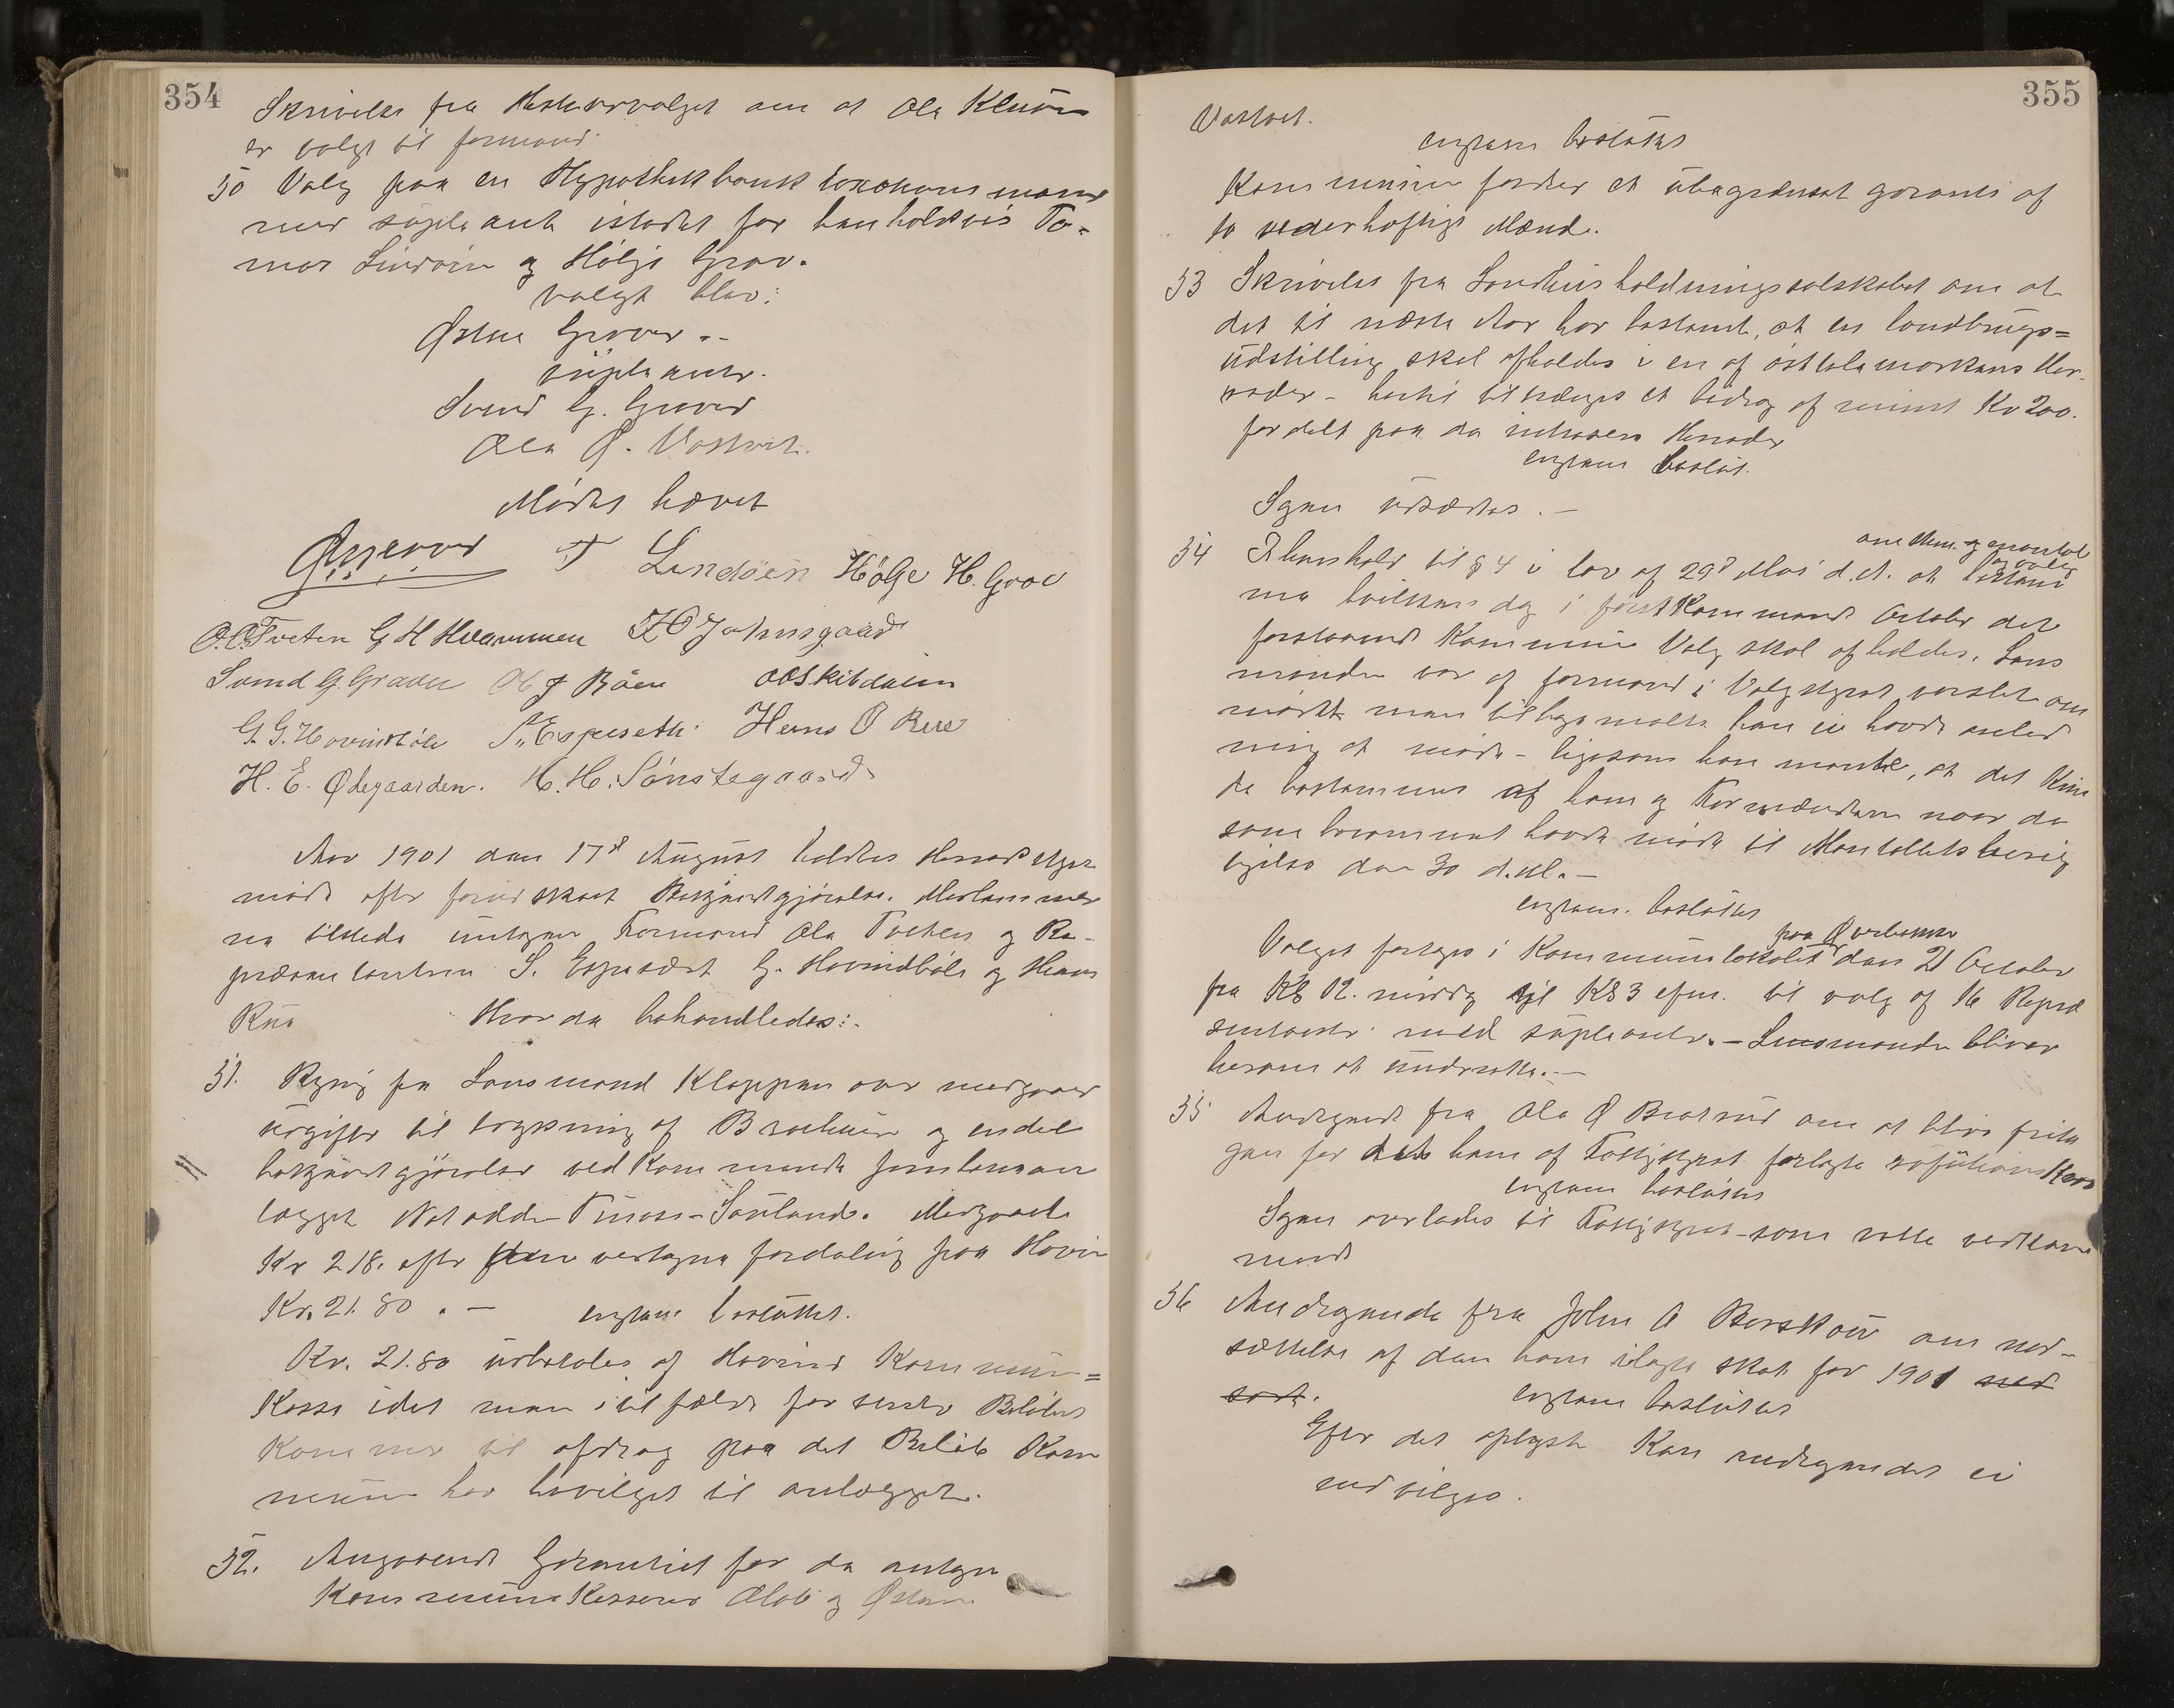 354
Skrivelse fra Hesteudvalget om at Ole Kleiven
er valgt til formand.
50 Valg paa en Hypothekbank taxationsmand
med supleant istedet for henholdsvis To-
mas Lindöen og Hölje Grov.
valgt blev:
Østen Grover.-
supleanter.
Svend G. Gruver
Ole Ø. Vastveit.
Mödet hævet
T Lindöen Hölje H. Grov
O.O.Tveten G H Hvammen H Jahnsgaard
Svend G. Graver Ole J Böen OOSkibdalen
G. G. Hovindböle S. Espeseth. Hans O Rue
H. E. Ødegaarden. H. H. Sönstegaard
Aar 1901 den 17de August holdtes Herredsstyre
möde efter forudskeet Bekjendtgjörelse. Medlemmer
ne tilstede undtagen Formand Ole Tveten og Re-
præsentanterne S. Espeseth G. Hovindböle og Hans
Rue Hvor da behandledes:-
51. Regning fra Lensmand Kloppen over medgaaed
udgifter til trykning af Brochure og endel
bekjendtgjörelser vedkommende Jernbanean
lægget Notodden-Tinoset-Sauland. Medgaaet
Kr 218. efter den vedtagne fordeling paa Hovin
Kr. 21.80 . — enstem besluttet.
Kr. 21.80 udbetales af Hovind Kommune=
Kasse idet man i tilfælde forventer Belöbet
kommer til afdrag paa det Belöb Kom
munen har bevilget til anlægget.
52. Angaaende Garantiet for de antagne
Kommunekasserer Olav og Østen
355
Vastveit.
enstem besluttes
Kommunen fordrer et ubegrændset garanti af
to vederhæftige Mænd.
53 Skrivelse fra Landhusholdningsselskabet om at
det til næste Aar har bestemt, at en landbrugs=
udstilling skal afholdes i en af östtelemarkens Her-
reder - hertil tilsæges et bidrag af mindst Kr 200.
fordelt paa de interessere Herreder
enstem beslut.
Sagen udsættes.—
54 I henhold til § 4 i lov af 29de Mai d.A. at bestem
me hvilken dag i förstkommende October det
forestaaende Kommune Valg skal afholdes. Lens
manden var af formand i Valgstyret varslet om
mödet men tilbagemeldte han ei havde anled
ning at möde - ligesom han mente, at det Kun
de bestemmes af ham og Formændene naar de
som bekjendt havde möde til Mantallets berig
tigelse den 30 d.M.—
enstem. besluttes
paa Øverbönne
Valget foretages i Kommunelokalet den 21 October
fra Kl 12. middag til Kl 3 efm. til valg af 16 Repræ
sentanter med supleanter.—Lensmanden bliver
herom at underrette.—
55 Andragende fra Ole O Bratrud om at blive frita
gen for det ham af Fattigstyret forlagte refutionskrav
enstem besluttes
Sagen overlades til Fattigstyret som rette vedkom
mende
56 Andragende fra John O Berskov om ned-
sættelse af den ham ilagte skat for 1901 ned
sadt.
enstem besluttes
Efter det oplyste kan andragendet ei
indvilges.